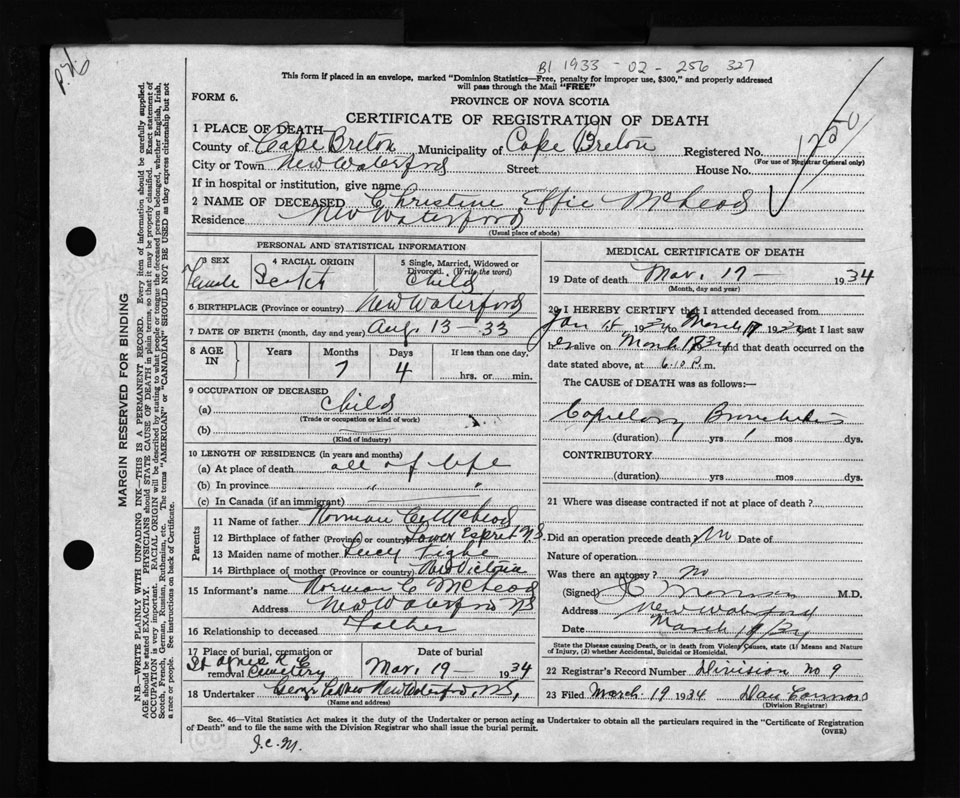 B1 1933 - 02 - 256 327
This form if placed in an envelope, marked "Dominion Statistics—Free, penalty for improper use, $300," and properly addressed
will pass through the Mail "FREE"
FORM 6.
PROVINCE OF NOVA SCOTIA
CERTIFICATE OF REGISTRATION OF DEATH
1 PLACE OF DEATH—
County of Cape Breton Municipality of Cape Breton Registered No.
(For use of Registrar General only)
City or Town New Waterford Street House No.
If in hospital or institution, give name
2 NAME OF DECEASED Christine Effie McLeod
Residence New Waterford
(Usual place of abode)
PERSONAL AND STATISTICAL INFORMATION
3 SEX 4 RACIAL ORIGIN 5 Single, Married, Widowed or
Divorced. (Write the word)
Female Scotch Child
6 BIRTHPLACE (Province or country) New Waterford
7 DATE OF BIRTH (month, day and year) Aug 13 - 33
8 AGE IN Years Months Days If less than one day.
7 4 hrs. or min.
9 OCCUPATION OF DECEASED
(a) Child
(Trade or occupation or kind of work)
(b)
(Kind of industry)
10 LENGTH OF RESIDENCE (in years and months)
(a) At place of death all of life
(b) In province " "
(c) In Canada (if an immigrant)
Parents
11 Name of father Norman C. McLeod
12 Birthplace of father (Province or country) Esprit N.S.
13 Maiden name of mother Lucy Tighe
14 Birthplace of mother (Province or country) New Victoria
15 Informant's name Norman C McLeod
Address New Waterford NS
16 Relationship to deceased Father
17 Place of burial, cremation or Date of burial
removal St Agnes R.C. Cemetery Mar. 19 1934
18 Undertaker George New Waterford, N.S.
(Name and address)
MEDICAL CERTIFICATE OF DEATH
19 Date of death Mar. 17 - 1934
(Month, day and year)
20 I HEREBY CERTIFY that I attended deceased from
Jan 1934 to March 17 1934 that I last saw
her alive on March 1934 and that death occurred on the
date stated above, at 6.10 P. m.
The CAUSE of DEATH was as follows:—
Capillary Bronchitis
(duration) yrs 1 mos dys.
CONTRIBUTORY
(duration) yrs mos dys.
21 Where was disease contracted if not at place of death?
Did an operation precede death? No Date of
Nature of operation
Was there an autopsy? no
(Signed) Morrison M.D.
Address New Waterford
Date March 19/34
State the Disease causing Death, or in death from Violent Causes, state (1) Means and Nature
of Injury, (2) whether Accidental, Suicidal or Homicidal.
22 Registrar's Record Number Division no 9
23 Filed March 19 1934 Dan Connors
(Division Registrar)
Sec. 46—Vital Statistics Act makes it the duty of the Undertaker or person acting as Undertaker to obtain all the particulars required in the "Certificate of Registration
of Death" and to file the same with the Division Registrar who shall issue the burial permit.
(OVER)
J.C.M.
MARGIN RESERVED FOR BINDING
N.B.—WRITE PLAINLY WITH UNFADING INK—THIS IS A PERMANENT RECORD. Every item of information should be carefully supplied.
AGE should be stated EXACTLY. PHYSICIANS should STATE CAUSE OF DEATH in plain terms, so that it may be properly classified. Exact statement of
OCCUPATION is very important. RACIAL ORIGIN will be described by stating to what people or tongue the deceased person belonged, whether English, Irish,
Scotch, French, German, Russian, Ruthenian, etc. The terms "AMERICAN" or "CANADIAN" SHOULD NOT BE USED as they express citizenship but not
a race or people. See instructions on back of Certificate.